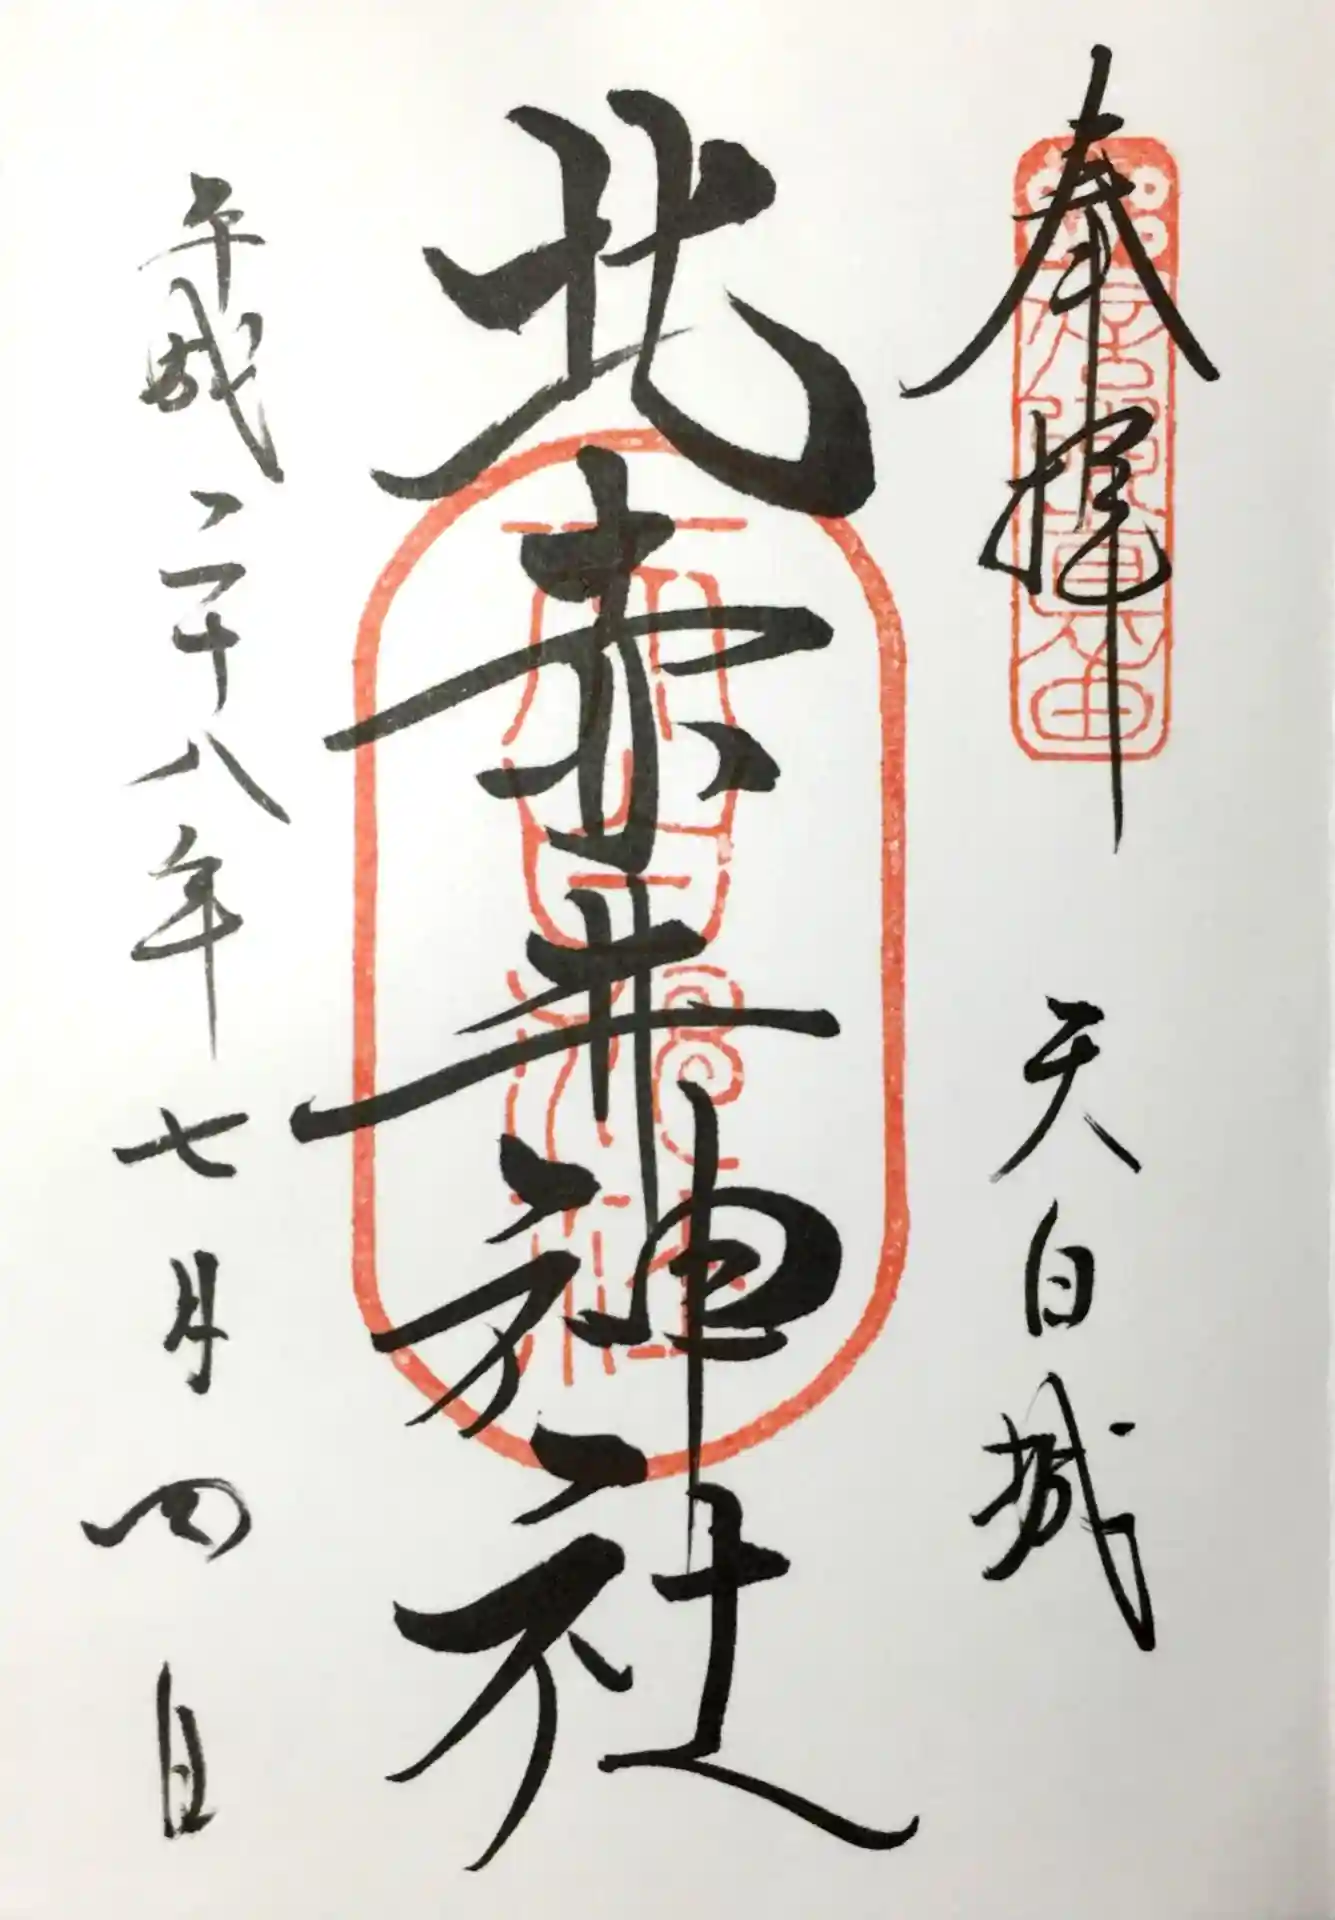 奉拝 天白城
北赤井神社
平成二十八年七月四日